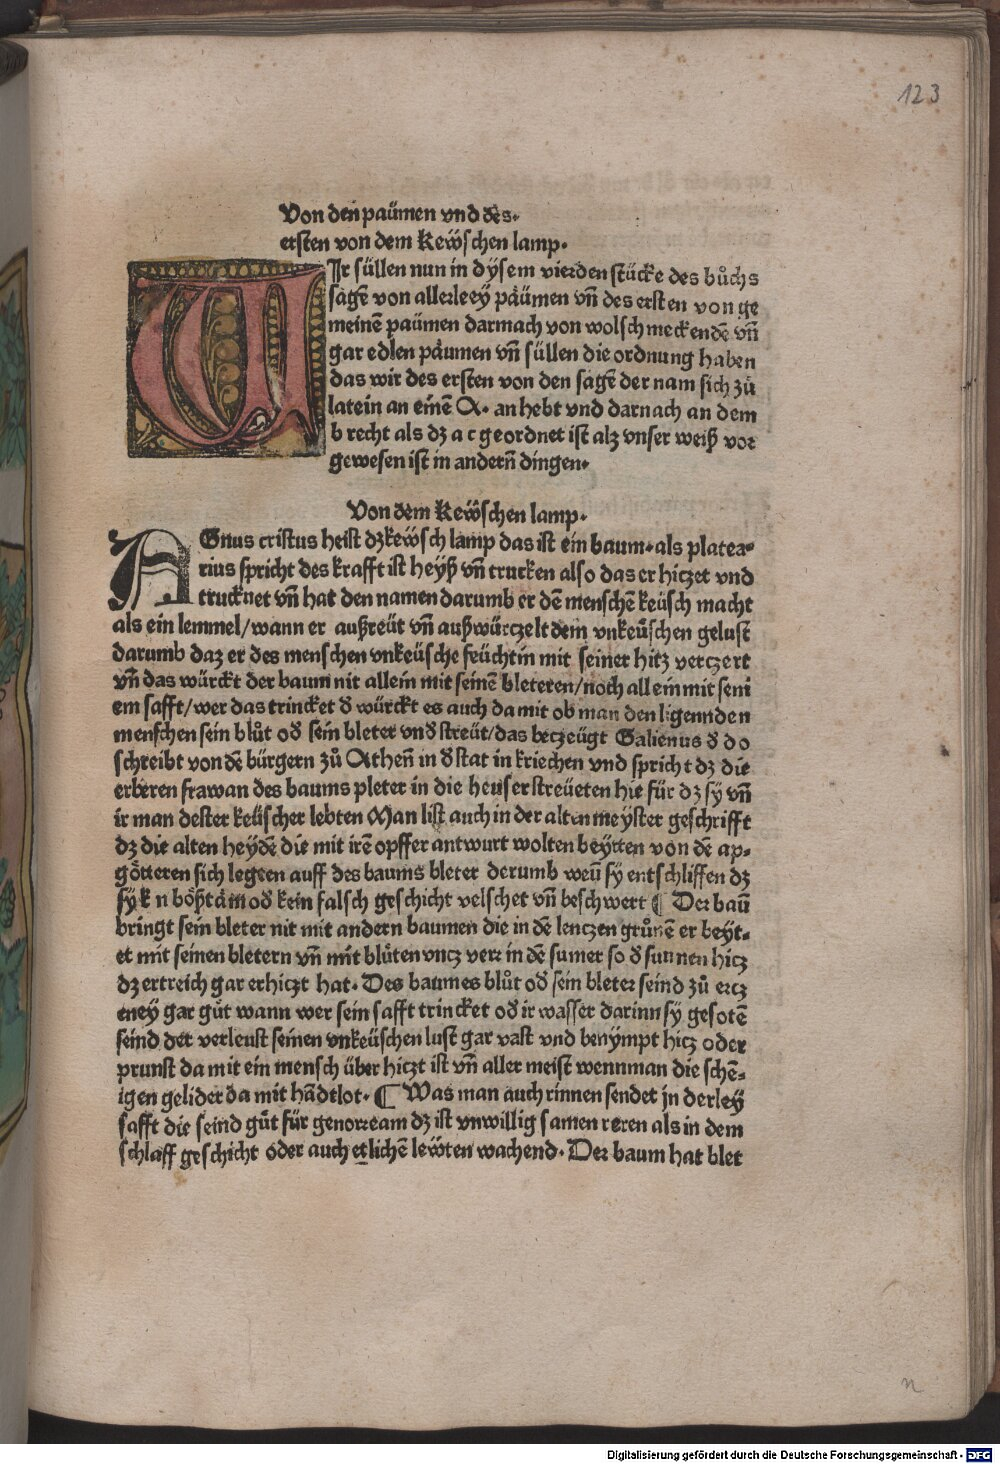 123
Von den paümen vnd des·
ersten von dem Keẅschen lamp·
WIr süllen nun in dÿsem vierden stücke des bůchs
sagē von allerleeÿ paͤumen vn̄ des ersten von ge
meinē paümen darnach von wolschmeckendē vn̄
gar edlen paͤumen vn̄ süllen die ordnung haben
das wir des ersten von den sagē der nam sich zů
latein an einē A· an hebt vnd darnach an dem
b recht als dz a c geordnet ist alz vnser weiß vor
gewesen ist in andern̄ dingen·
Von dem Keẅschen lamp·
AGnus cristus heist dz keẅsch lamp das ist ein baum· als platea⸗
rius spricht des krafft ist heÿß vn̄ trucken also das er hiczet vnd
trucknet vn̄ hat den namen darumb er dē menschē keüsch macht
als ein lemmel/wann er außreüt vn̄ außwürczelt dem vnkeüschen gelust
darumb daz er des menschen vnkeüsche feüchtin mit seiner hitz verczert
vn̄ das würckt der baum nit allein mit seinē bleteren/noch allein mit seni
em safft/wer das trincket d̄ würckt es auch da mit ob man den ligennden
menschen sein blůt od̄ sein bleter vnd̄ streüt/das beczeügt Galienus d̄ do
schreibt von dē bürgern zů Athen̄ in d̄ stat in kriechen vnd spricht dz die
erberen frawan des baums pleter in die heuser streüeten hie für dz sÿ vn̄
ir man dester keüscher lebten Man list auch in der alten meyster geschrifft
dz die alten heydē die mit irē opffer antwurt wolten beÿtten von dē ap⸗
götteren sich legten auff des baums bleter derumb weū sÿ entschliffen dz
sÿ k n böß tām od̄ kein falsch geschicht velschet vn̄ beschwert ¶ Der baū
bringt sein bleter nit mit andern baumen die in dē lenczen grůnē er beÿt⸗
et mit seinen bletern vn̄ mit blůten vncz verr in dē sumer so d̄ sunnen hicz
dz ertreich gar erhiczt hat· Des baumes blůt od̄ sein bleter seind zů ercz
eney gar gůt wann wer sein safft trincket od̄ ir wasser darinn sÿ gesotē
seind der verleust seinen vnkeüschen lust gar vast vnd benÿmpt hicz oder
prunst da mit ein mensch über hiczt ist vn̄ aller meist wennman die schē⸗
igen gelider da mit hādtlot· ¶ Was man auch rinnen sendet jn derleÿ
safft die seind gůt für genorream dz ist vnwillig samen reren als in dem
schlaff geschicht oder auch etlichē leẅten wachend· Der baum hat blet
n
Digitalisierung gefördert durch die Deutsche Forschungsgemeinschaft - DFG